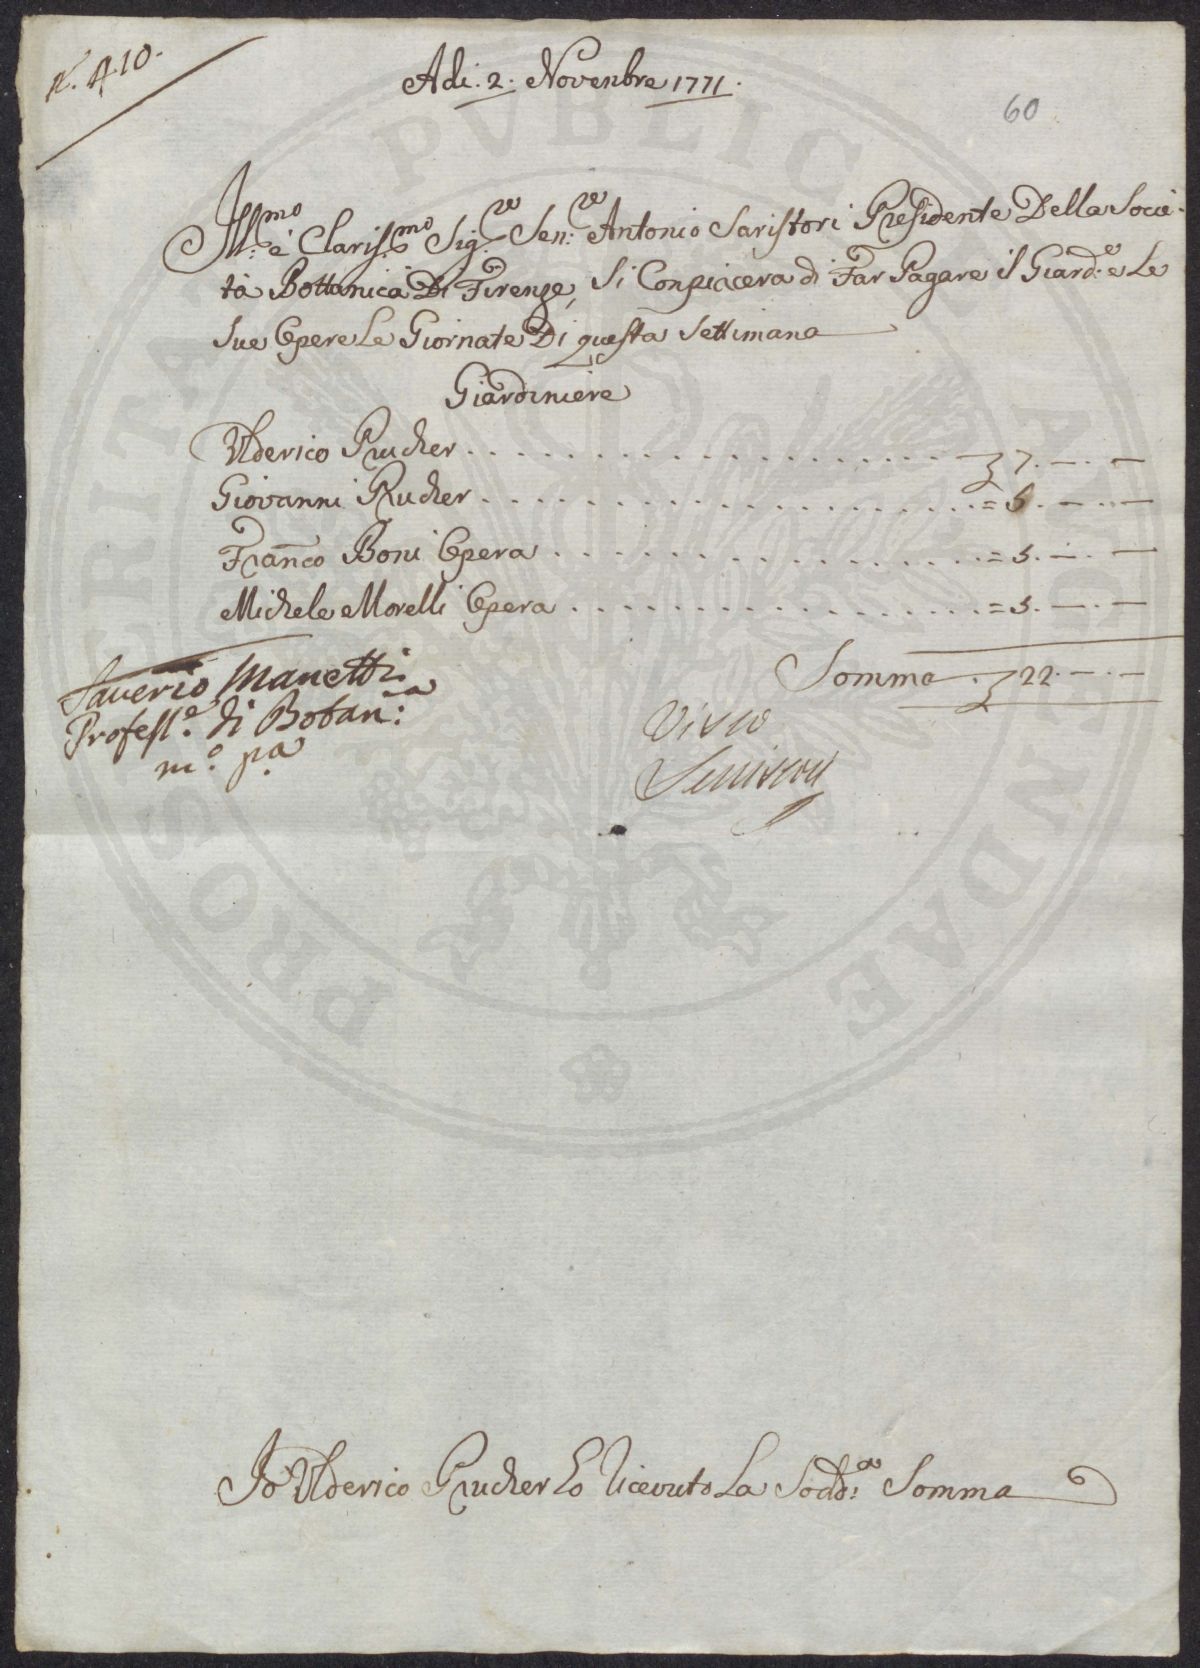 N. 410.
Adi. 2. Novenbre 1771.
60
Ill:mo e Claris:mo Sig.re Sen:re Antonio Saristori Presidente Della Socie-
tà Bottanica Di Firenze, Si Conpiacera di Far Pagare il Giard:e e Le
Sue Opere Le Giornate Di questa Settimana
Giardiniere
Ulderico Prucher . . . . . . . . . . . . . . . . . . . . 7. — . —
Giovanni Prucher . . . . . . . . . . . . . . . . . . . = 5. — . —
Franco Boni Opera . . . . . . . . . . . . . . . . . = 5. — . —
Michele Morelli Opera . . . . . . . . . . . . . . . . = 5. — . —
Somma . 22. — . —
Saverio Manetti
Profess:e di Botan:ca
m:o p:a
Visto
Io Ulderico Prucher Lo Ricevuto La Sodd:a Somma
PUBLICAE FELICITATIS
PROSPERITATI AUGENDAE